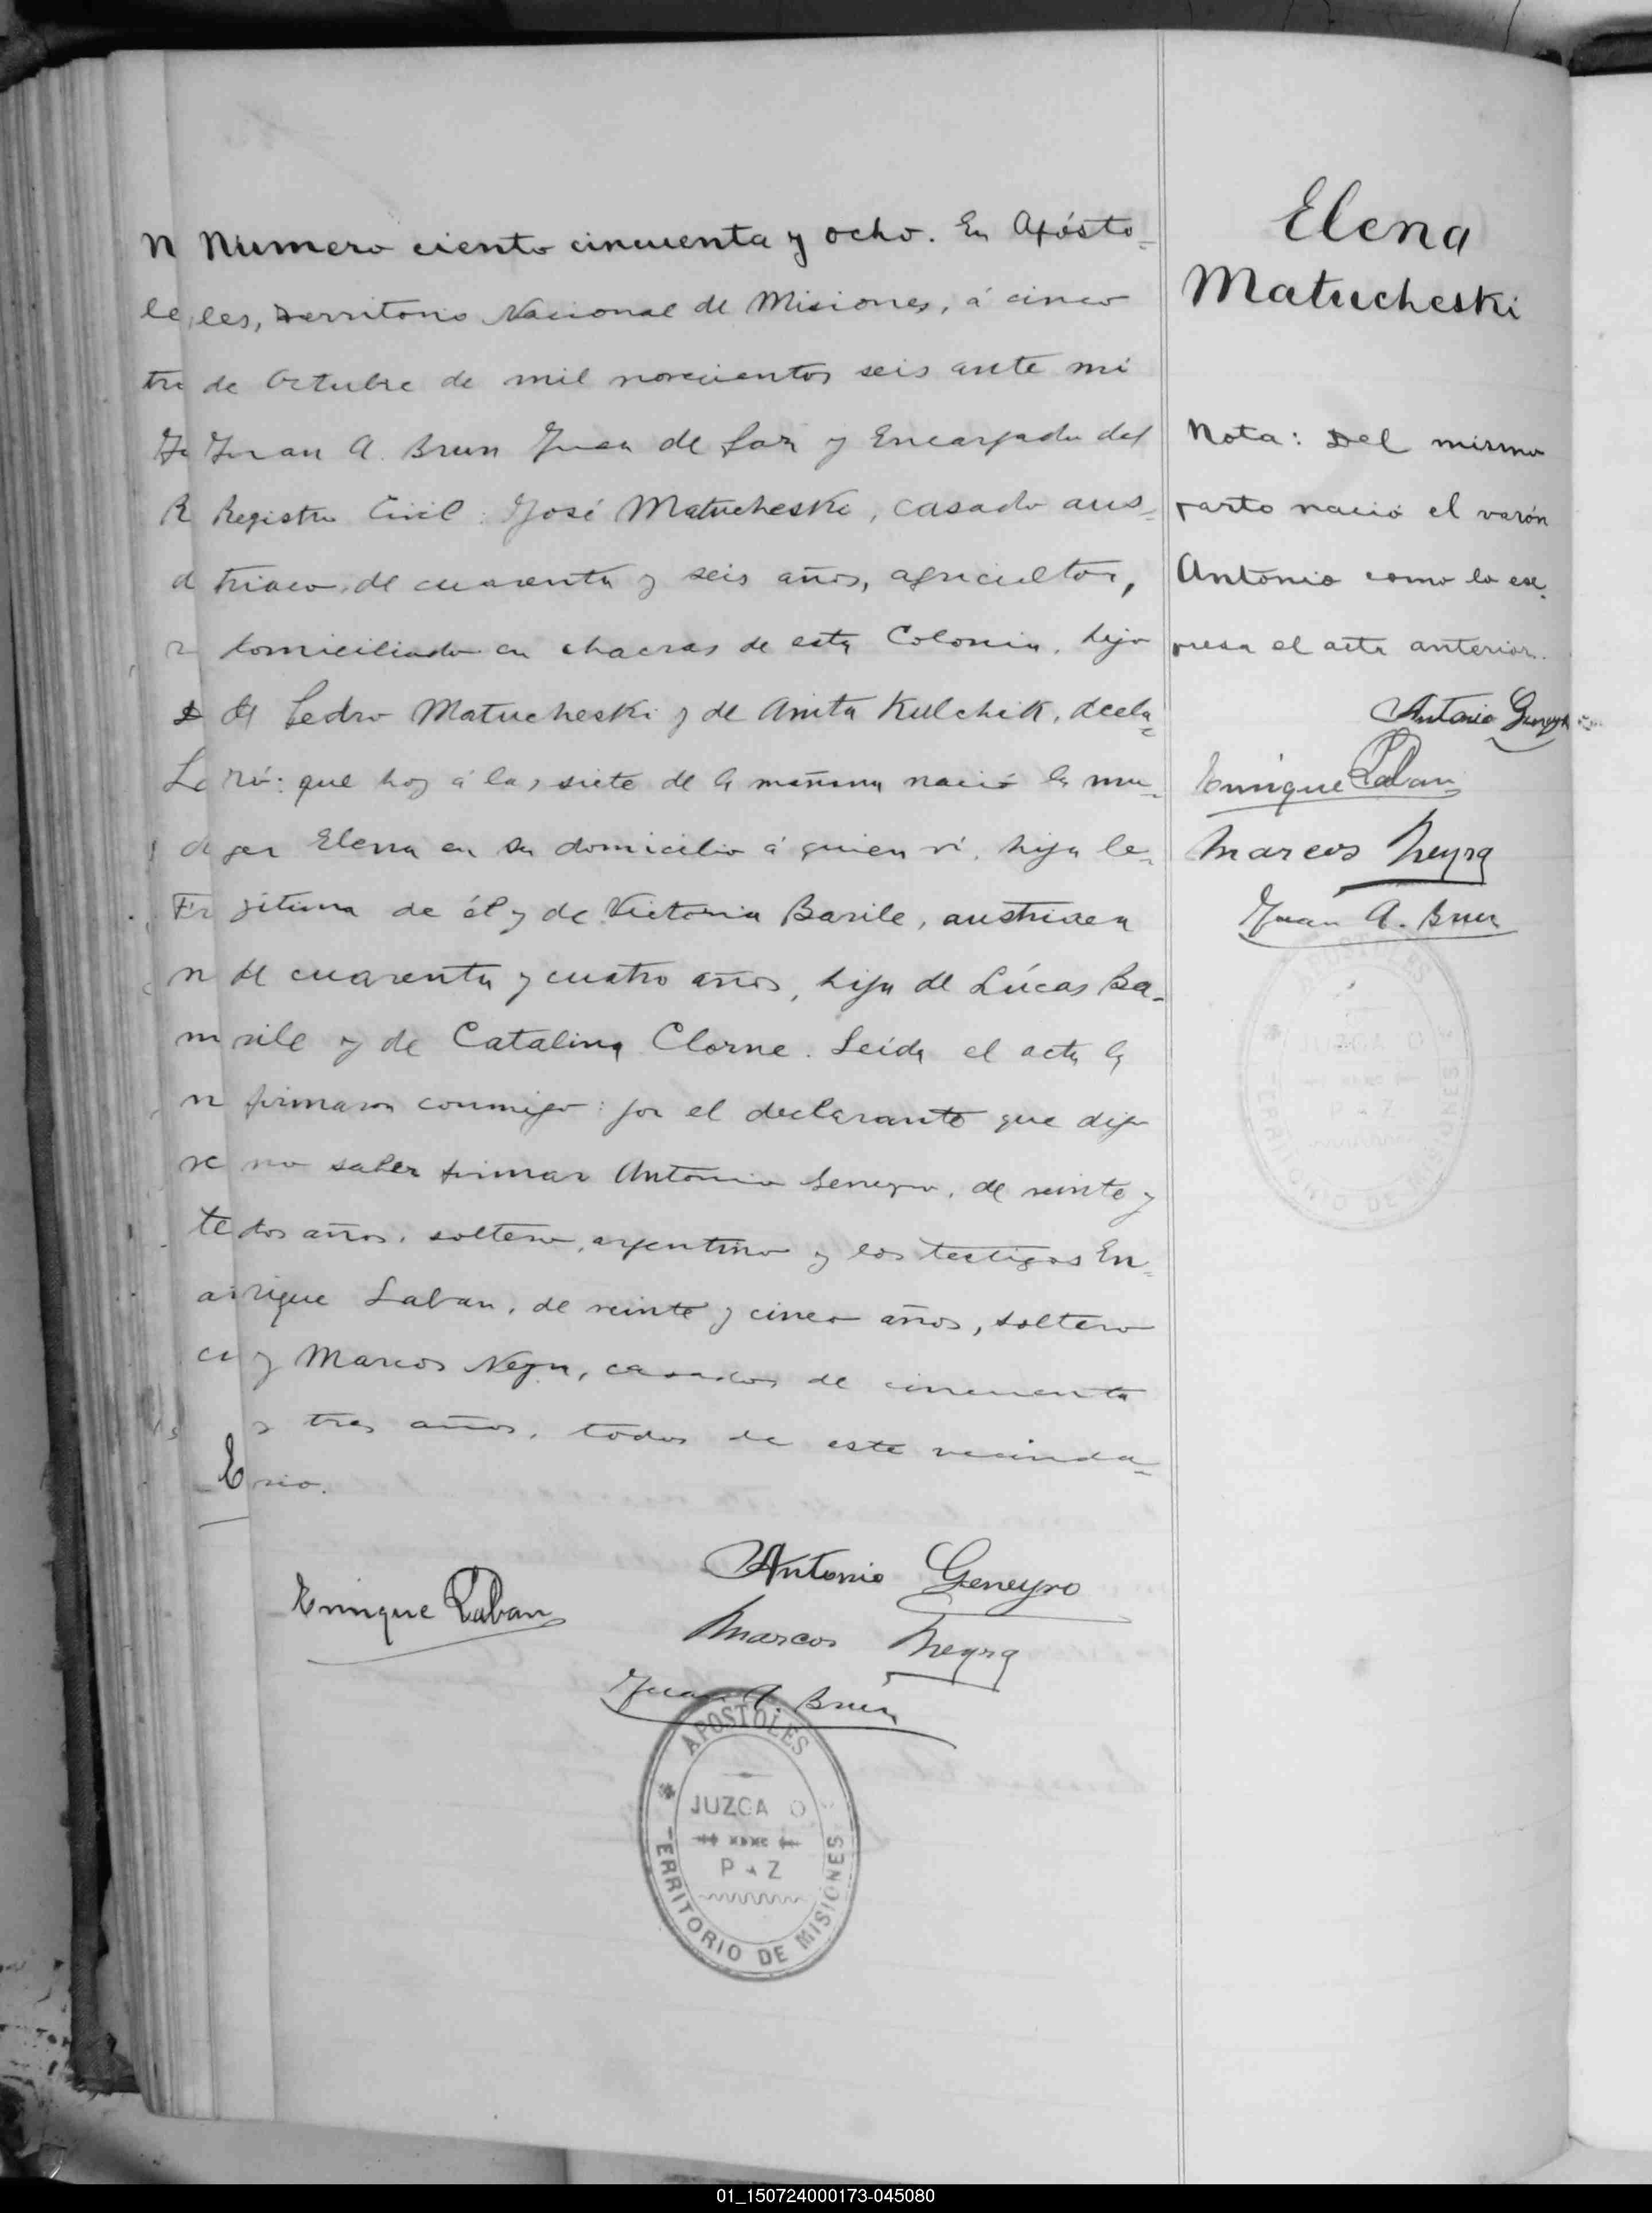 Numero ciento cincuenta y ocho. En Apósto-
les, Territorio Nacional de Misiones, á cinco
de Octubre de mil novecientos seis ante mi
Juan A. Brun Juez de Paz y Encargado del
Registro Civil: José Matucheski, casado aus-
triaco, de cuarenta y seis años, agricultor,
domiciliado en chacras de esta Colonia, hijo
de Pedro Matucheski y de Anita Kulchik, decla-
ró: que hoy á las siete de la mañana nació la mu-
ger Elena en su domicilio á quien ví, hija le-
gitima de él y de Victoria Basile, austriaca
de cuarenta y cuatro años, hija de Lúcas Ba-
sile y de Catalina Clorne. Leida el acta la
firmaron conmigo: por el declarante que dijo
no saber firmar Antonio Geneyro, de veinte y
dos años, soltero, argentino y los testigos En-
rique Laban, de veinte y cinco años, soltero
y Marcos Neyra, casado, de cincuenta
y tres años, todos de este vecinda-
rio.
Antonio Geneyro
Enrique Laban
Marcos Neyra
Juan A. Brun
APOSTOLES
JUZGA O
P A Z
TERRITORIO DE MISIONES
Elena
Matucheski
Nota: Del mismo
parto nació el varón
Antonio como lo ex-
presa el acta anterior.
Antonio Geneyro
Enrique Laban
Marcos Neyra
Juan A. Brun
APOSTOLES
JUZGA O
P A Z
TERRITORIO DE MISIONES
01_150724000173-045080